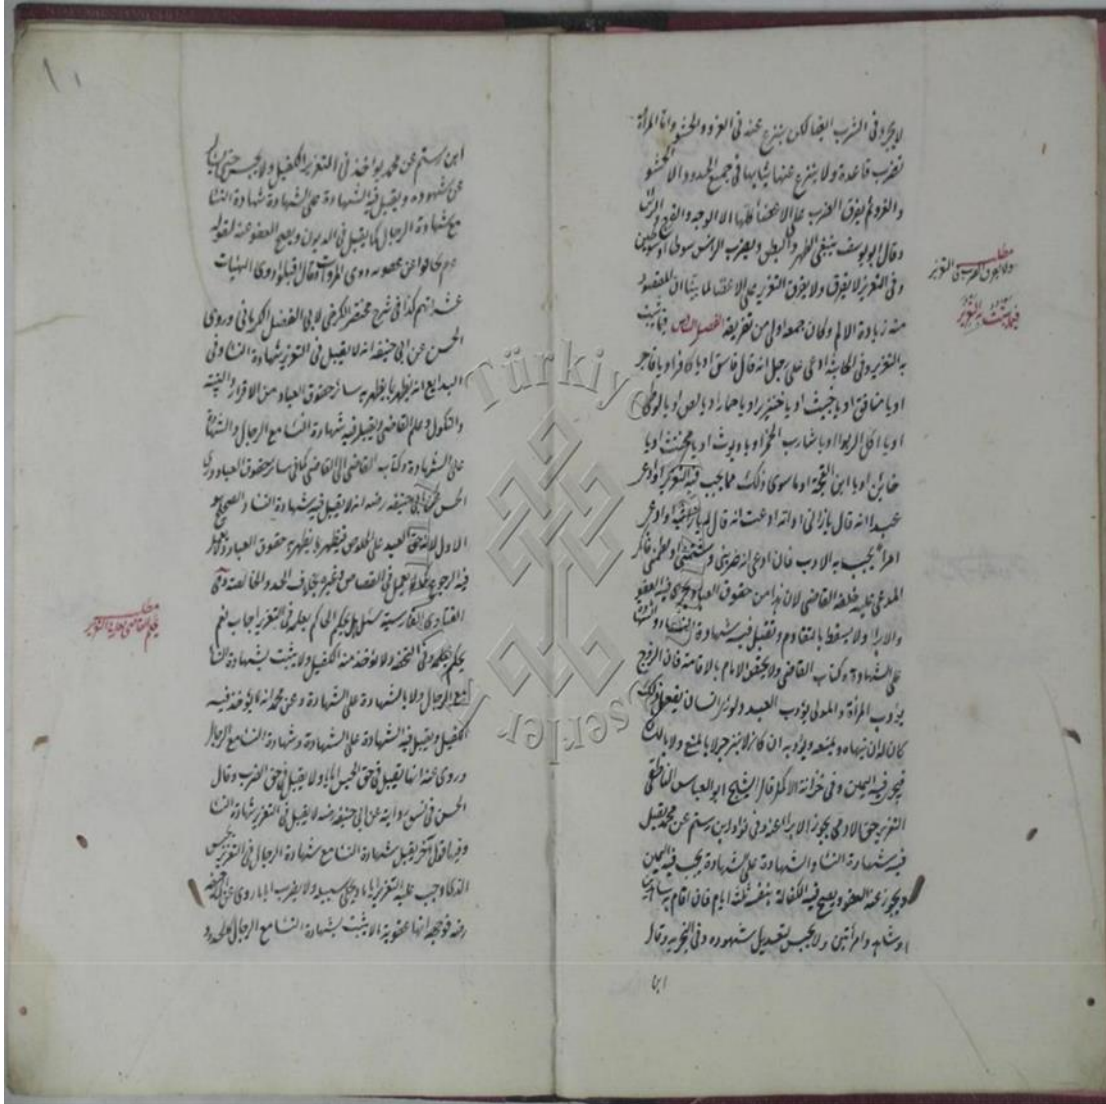 لا يجرد في الشرب ايضا لكن ينزع عنه في الفرو والحشو واما المرأة
تضرب قاعدة ولا ينزع عنها ثيابها في جميع الحدود الا الحشو
والفرو ثم يفرق الضرب على الاعضاء كلها الا الوجه والفرج والرأس
وقال ابو يوسف يتقي الظهر والبطن ويضرب الرأس سوطا او سوطين
وفي التعزير لا يفرق ولا يفرق التعزير على الاعضاء لما بينا ان المقصود
منه زيادة الالم وكان جمعه اولى من تفريقه الفصل السادس فيما يثبت
به التعزير وفي ادعى على رجل انه قال فاسق او يا كافر او يا فاجر
او يا منافق او يا خبيث او يا خنزير او يا حمار او يا لص او يا لوطي
او يا آكل الربوا او يا شارب الخمر او يا ديوث او يا مخنث او يا
خائن او يا ابن القحبة او ما سوى ذلك مما يجب فيه التعزير او ادعى
عبد انه قال يا زاني او امة ادعت انه قال لها يا زانية او ادعى
امرأ يجب به الادب فان ادعى انه ضربني وشتمني ولطمني فانكر
المدعى عليه حلفه القاضي لان هذا من حقوق العباد ويجري فيه العفو
والابراء ولا يسقط بالتقادم وتقبل فيه شهادة النساء والشهادة
على الشهادة وكتاب القاضي ولا يختص الامام بالاقامة فان الزوج
يؤدب المرأة والمولى يؤدب العبد ولو رأى انسان يفعل ذلك
كان له ان ينهاه ويمنعه ويؤدبه ان كان لا ينزجر بالمنع ولا بالك
فيجري فيه اليمين وفي خزانة الاكمل قال الشيخ ابو العباس الناطفي
التعزير حق الادمي يجوز الابراء عنه وفي نوادر ابن رستم عن محمد يقبل
فيه شهادة النساء والشهادة على الشهادة يجب فيه اليمين
ويجوز عنه العفو ويصح فيه الكفالة بنفسه ثلثة ايام فان اقام به شاهدين
او شاهد وامرأتين ولا يحبس لتعديل شهوده وفي التجريد وقال
ابن
مطلب
ولا يفرق الضرب في التعزير
فيما يثبت به التعزير
١٠
ابن رستم عن محمد يؤاخذ في التعزير الكفيل ولا يحبس حتى يسأل
عن شهوده ويقبل فيه الشهادة على الشهادة شهادة النساء
مع شهادة الرجال كما يقبل في الديون ويصح العفو عنه لقوله
عم تجافوا عن عقوبة ذوي المروات وقال اقيلوا ذوي الهيئات
عثراتهم كذا في شرح مختصر الكرخي لابي الفضل الكرماني وروى
الحسن عن ابي حنيفة انه لا يقبل في التعزير شهادة النساء وفي
البدايع انه يظهر بما يظهر به سائر حقوق العباد من الاقرار والبينة
والنكول وعلم القاضي ويقبل فيه شهادة النساء مع الرجال والشهادة
على الشهادة وكتاب القاضي الى القاضي كما في سائر حقوق العباد وروى
الحسن عن ابي حنيفة رضه انه لا يقبل فيه شهادة النساء والصحيح هو
الاول لانه حق العبد على الخلوص فيظهر بما يظهر به حقوق العباد ولا يعمل
فيه الرجوع كما لا يعمل في القصاص وغيره بخلاف الحدود الخالصة وفي
الفتاوى الفارسية سئل هل يحكم الحاكم بعلمه في التعزير اجاب نعم
يحكم بعلمه وفي التحفة ولا يؤخذ منه الكفيل ولا يثبت بشهادة النساء
مع الرجال ولا بالشهادة على الشهادة وعن محمد انه يؤخذ فيه
الكفيل ويقبل فيه الشهادة على الشهادة وشهادة النساء مع الرجال
وروى عنه انها يقبل في حق الحبس اياما ولا يقبل في حق الضرب وقال
الحسن في رواية عن ابي حنيفة رضه لا يقبل في التعزير شهادة النساء
وفيها قول آخر يقبل شهادة النساء مع شهادة الرجال في التعزير يحبس
الذي وجب عليه التعزير اياما ويخلي سبيله ولا يضرب اما ما روى عن ابي حنيفة
رضه فوجهه انها عقوبة لا يثبت بشهادة النساء مع الرجال كالحدود
مطلب
يحكم القاضي بعلمه في التعزير
Türkiye
Eserler